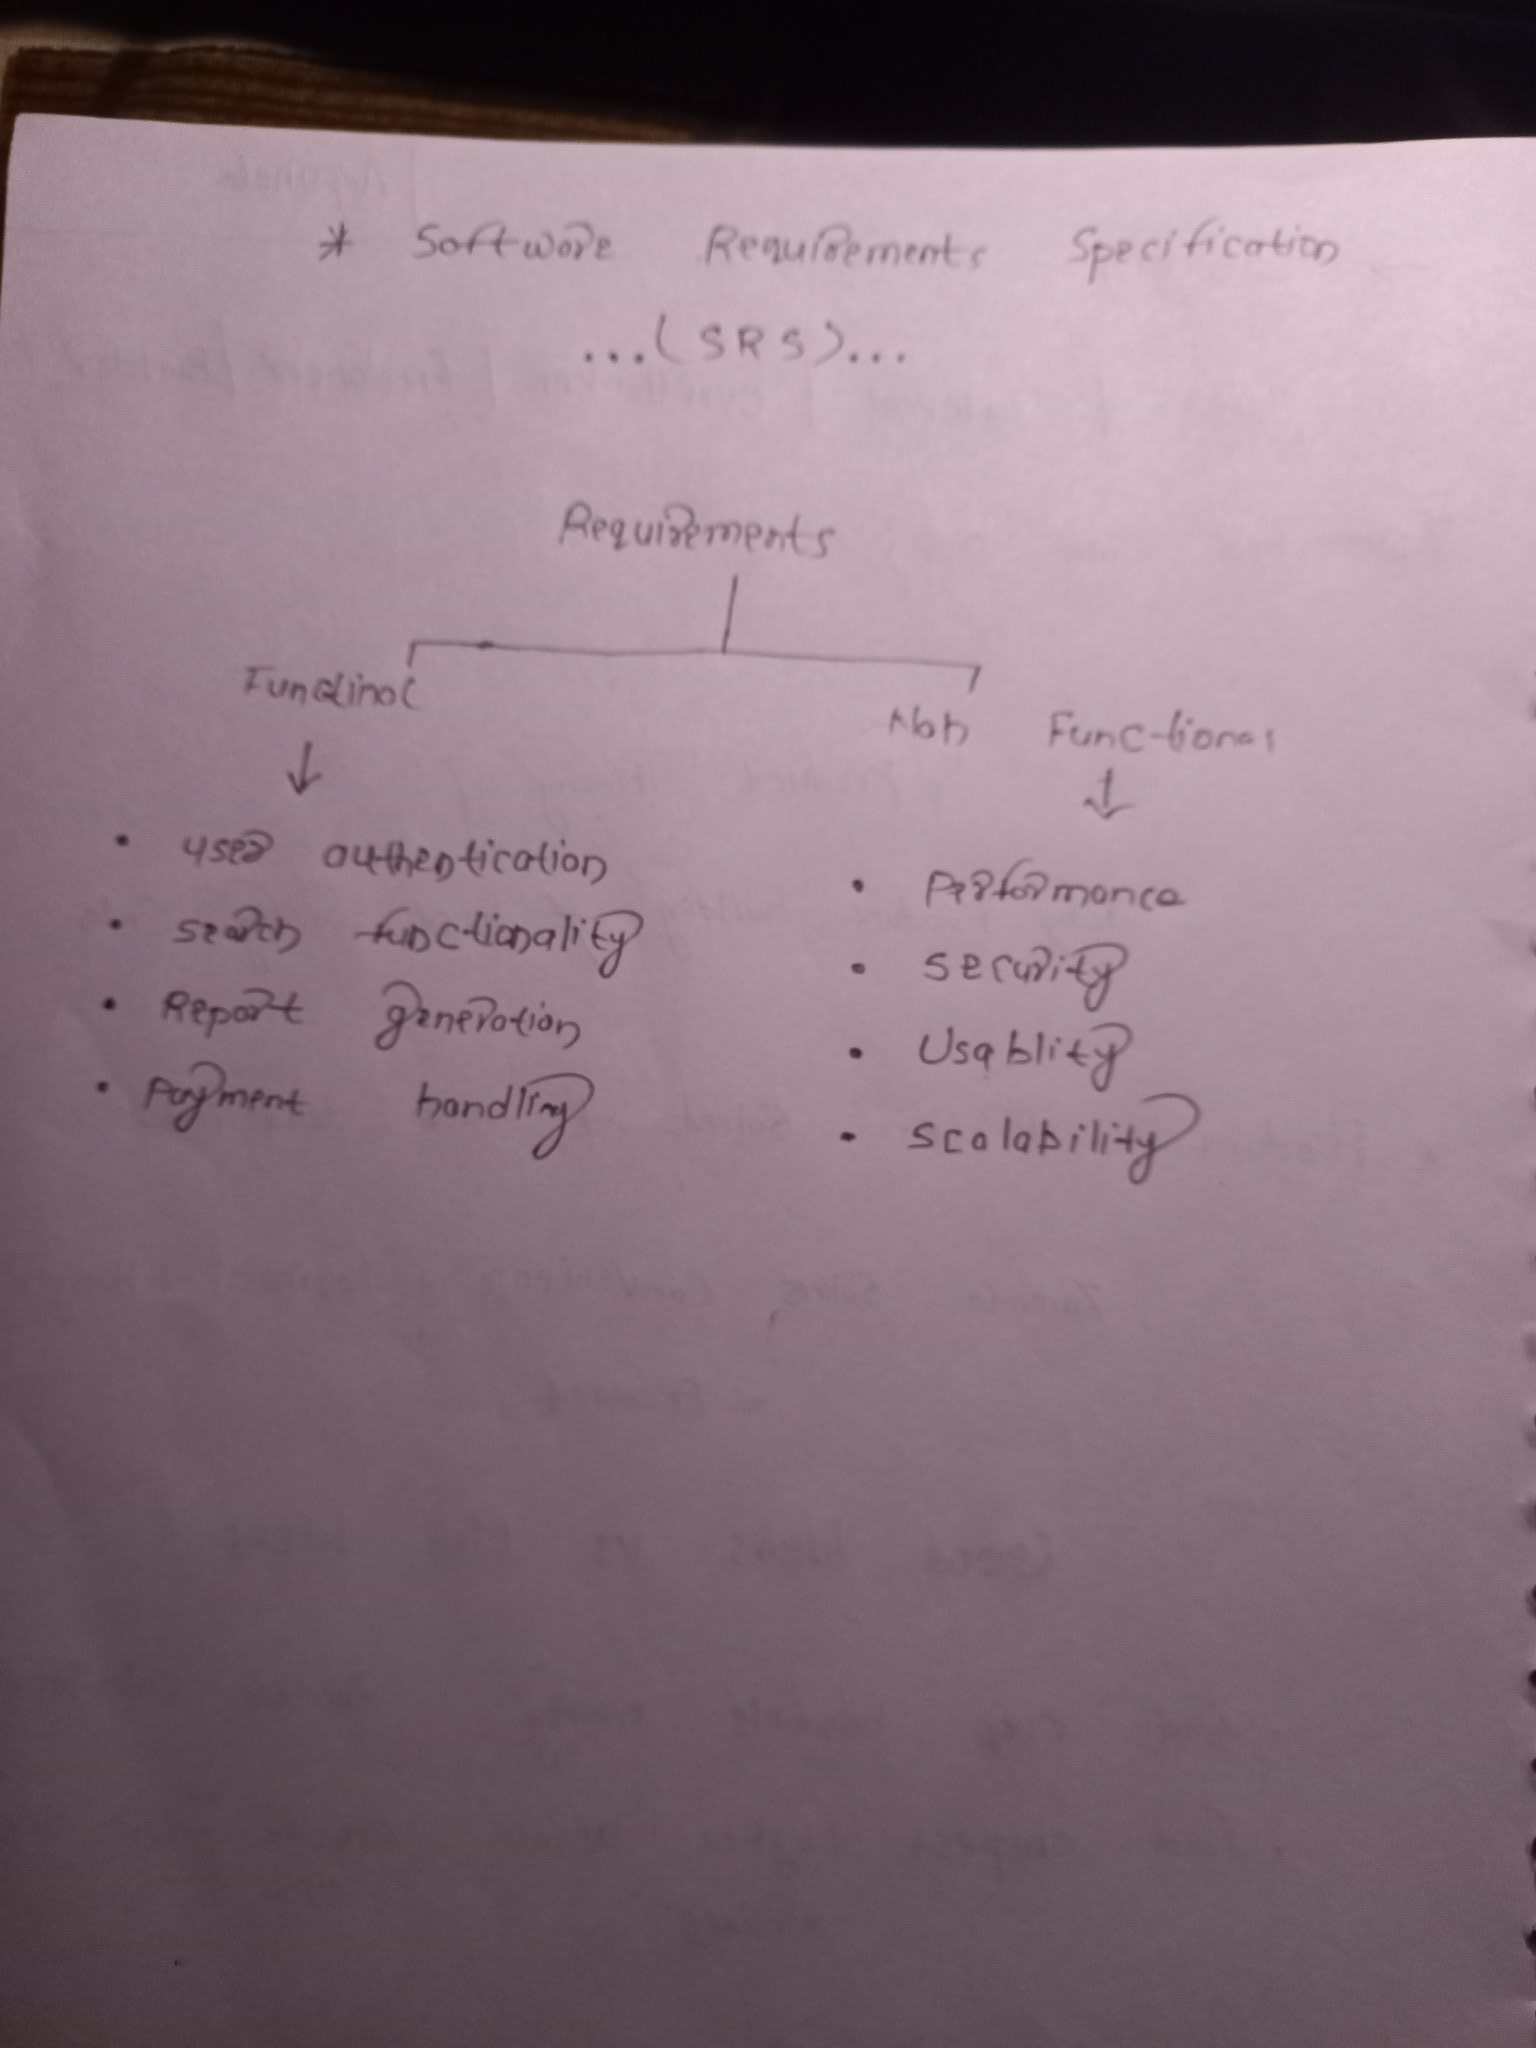 * Software Requirements Specification
...(SRS)...
Requirements
Functinol
Non Functional
• user authentication
• search functionality
• Report generation
• Payment handling
• Performance
• security
• Usablity
• scalability